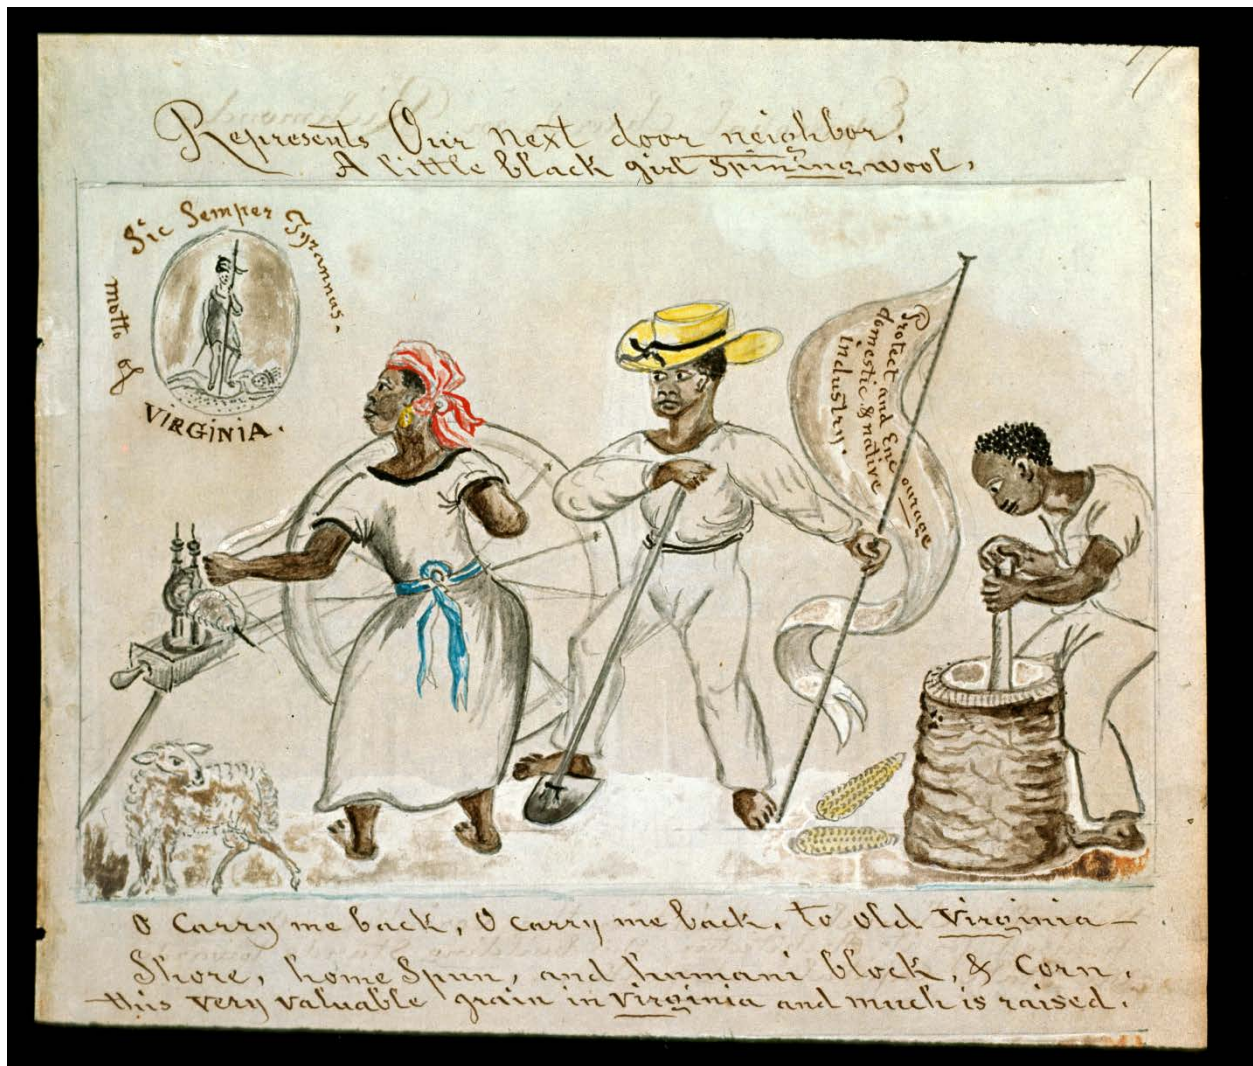 Represents Our next door neighbor,
A little black girl Spinning wool,
Sic Semper Tyrannus.
motto of
VIRGINIA.
Protect and Encourage
domestic & native
Industry.
O Carry me back, O carry me back, to old Virginia—
Shore, home Spun, and humani block, & Corn,
this very valuable grain in Virginia and much is raised.